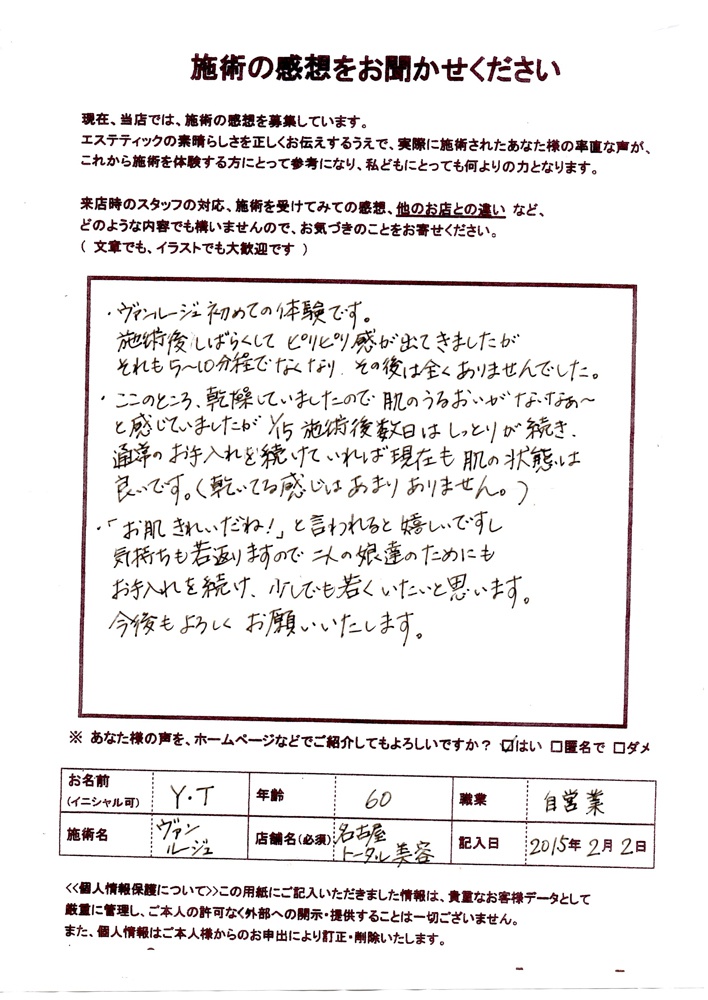 施術の感想をお聞かせください
現在、当店では、施術の感想を募集しています。
エステティックの素晴らしさを正しくお伝えするうえで、実際に施術されたあなた様の率直な声が、
これから施術を体験する方にとって参考になり、私どもにとっても何よりの力となります。
来店時のスタッフの対応、施術を受けてみての感想、他のお店との違い など、
どのような内容でも構いませんので、お気づきのことをお寄せください。
( 文章でも、イラストでも大歓迎です )
・ヴァンルージュ初めての体験です。
施術後しばらくして ピリピリ感が出てきましたが
それも5〜10分程でなくなり、その後は全くありませんでした。
・ここのところ、乾燥していましたので 肌のうるおいがないなぁ〜
と感じていましたが 1/15 施術後数日はしっとりが続き、
通常のお手入れを続けていれば現在も肌の状態は
良いです。(乾いてる感じはあまりありません。)
・「お肌きれいだね!」と言われると嬉しいですし
気持ちも若返りますので 二人の娘達のためにも
お手入れを続け、少しでも若くいたいと思います。
今後もよろしく お願いいたします。
※ あなた様の声を、ホームページなどでご紹介してもよろしいですか? ☑はい □匿名で □ダメ
お名前(イニシャル可) Y・T 年齢 60 職業 自営業
施術名 ヴァンルージュ 店舗名(必須) 名古屋トータル美容 記入日 2015年 2月 2日
<<個人情報保護について>>この用紙にご記入いただきました情報は、貴重なお客様データとして
厳重に管理し、ご本人の許可なく外部への開示・提供することは一切ございません。
また、個人情報はご本人様からのお申出により訂正・削除いたします。